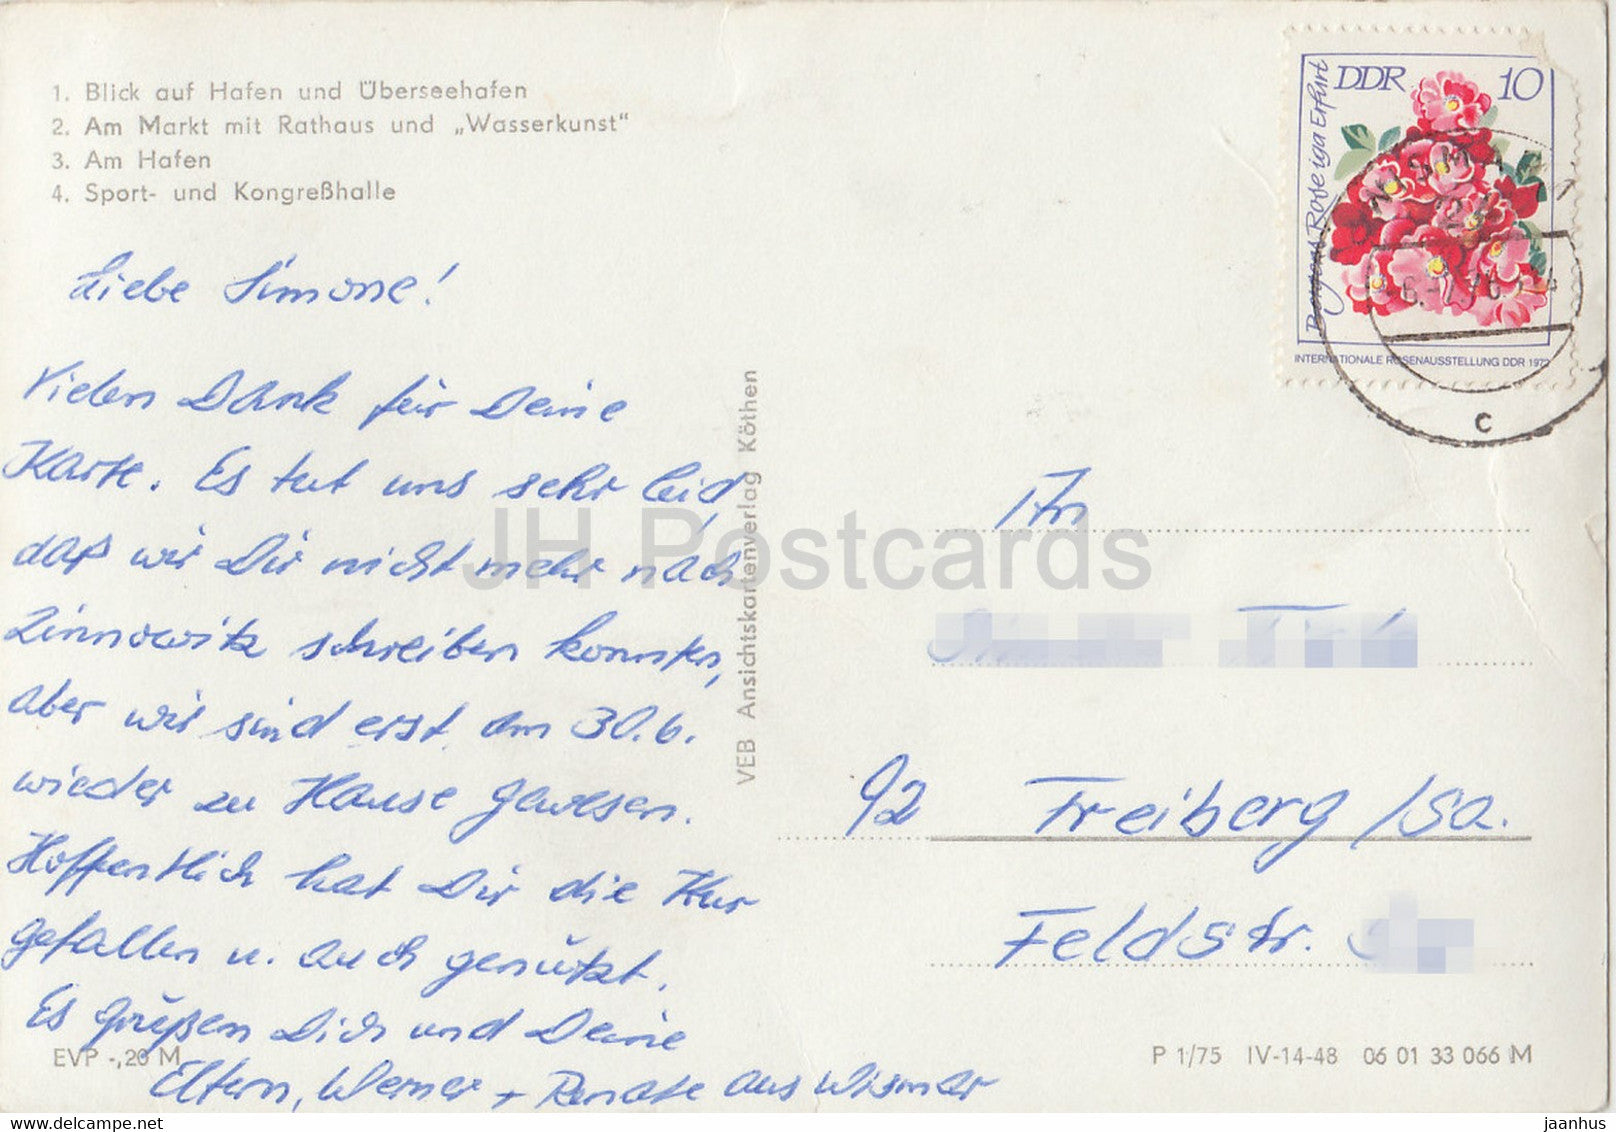 1. Blick auf Hafen und Überseehafen
2. Am Markt mit Rathaus und „Wasserkunst"
3. Am Hafen
4. Sport- und Kongreßhalle
Liebe Simone!
Vielen Dank für Deine
Karte. Es tut uns sehr leid,
daß wir Dir nicht mehr nach
Zinnowitz schreiben konnten,
aber wir sind erst am 30.6.
wieder zu Hause gewesen.
Hoffentlich hat Dir die Kur
gefallen u. auch genützt.
Es grüßen Dich und Deine
Eltern, Werner + Renate aus Wismar
EVP -,20 M
VEB Ansichtskartenverlag Köthen
DDR 10
Bergers Rose iga Erfurt
INTERNATIONALE ROSENAUSSTELLUNG DDR 1972
WISMAR 1
c
An
92 Freiberg/Sa.
Feldstr.
P 1/75 IV-14-48 06 01 33 066 M
JH Postcards
delcampe.net
jaanhus